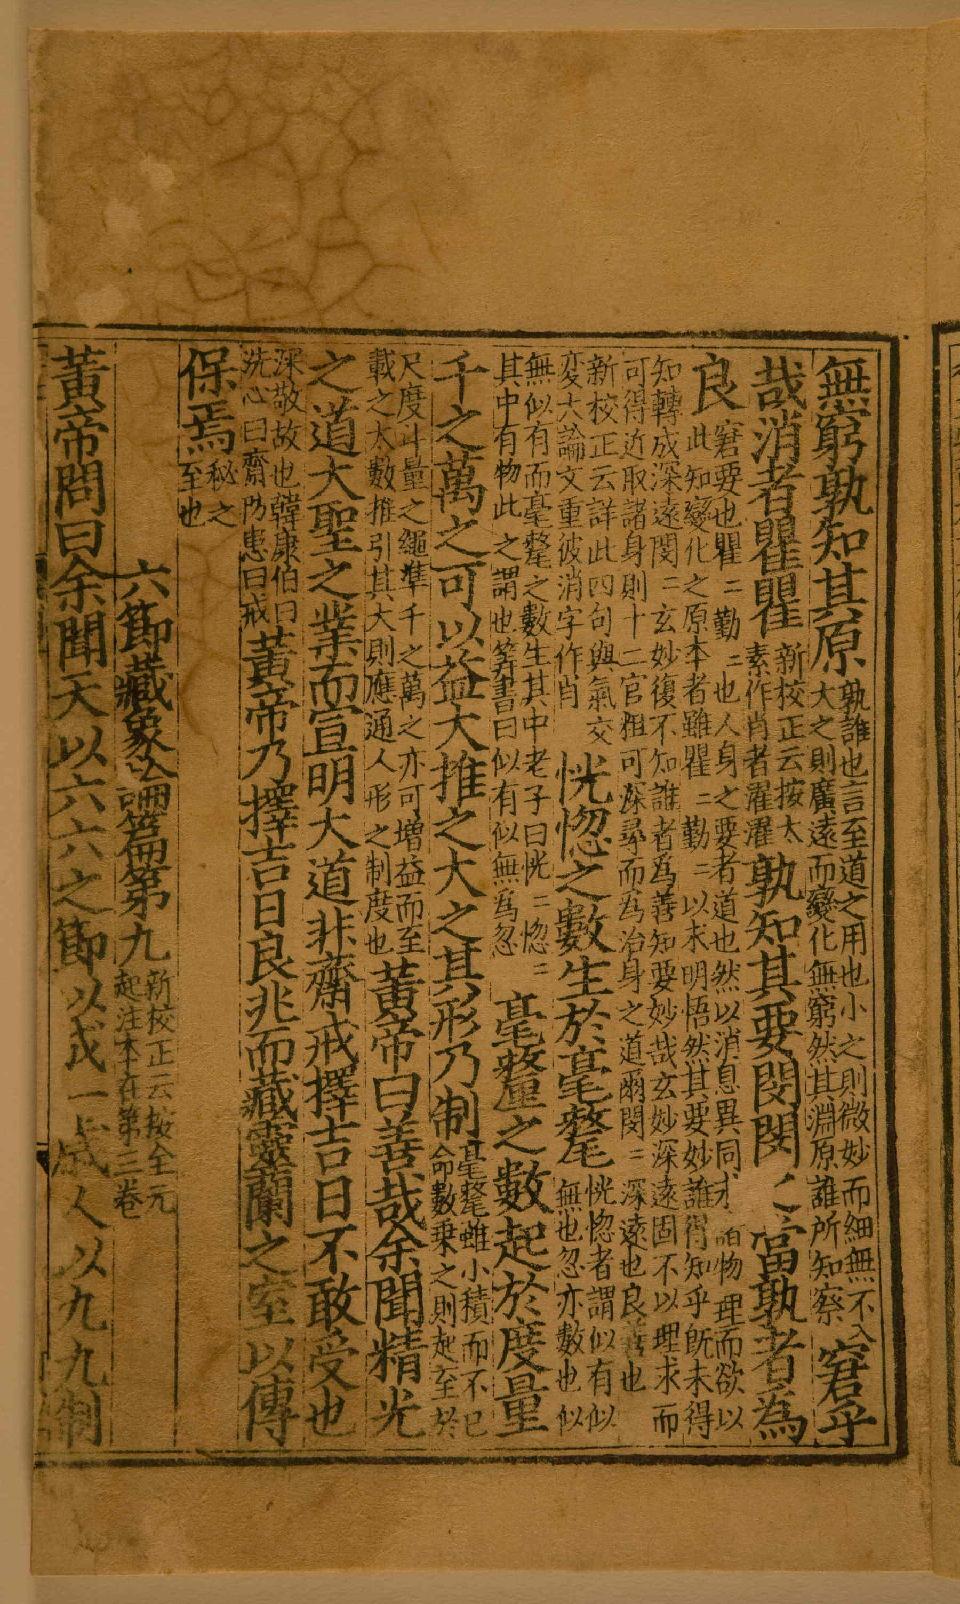 無窮孰知其原孰誰也言至道之用也小之則微妙而細無不入大之則廣遠而變化無窮然其淵原誰所知察窘乎
哉消者瞿瞿新校正云按太素作肖者濯濯孰知其要閔閔之當孰者爲
良窘要也瞿〻勤〻也人身之要者道也然以消息異同求諸物理而欲以此知變化之原本者雖瞿〻勤〻以求明悟然其要妙誰得知乎旣未得
知轉成深遠閔〻玄妙復不知誰者爲善知要妙哉玄妙深遠固不以理求而
可得近取諸身則十二官粗可深尋而爲治身之道爾閔〻深遠也良善也
新校正云詳此四句與氣交變大論文重彼消字作肖恍惚之數生於毫氂恍惚者謂似有似無也忽亦數也似
無似有而毫氂之數生其中老子曰恍〻惚〻其中有物此之謂也筭書曰似有似無爲忽毫釐之數起於度量
千之萬之可以益大推之大之其形乃制毫氂雖小積而不已命數乗之則起至於
尺度斗量之繩準千之萬之亦可增益而至載之大數推引其大則應通人形之制度也黃帝曰善哉余聞精光
之道大聖之業而宣明大道非齋戒擇吉日不敢受也
深敬故也韓康伯曰洗心曰齋防患曰戒黃帝乃擇吉日良兆而藏靈蘭之室以傳
保焉秘之至也
六節藏象論篇第九新校正云按全元起注本在第三卷
黃帝問曰余聞天以六六之節以成一歲人以九九制